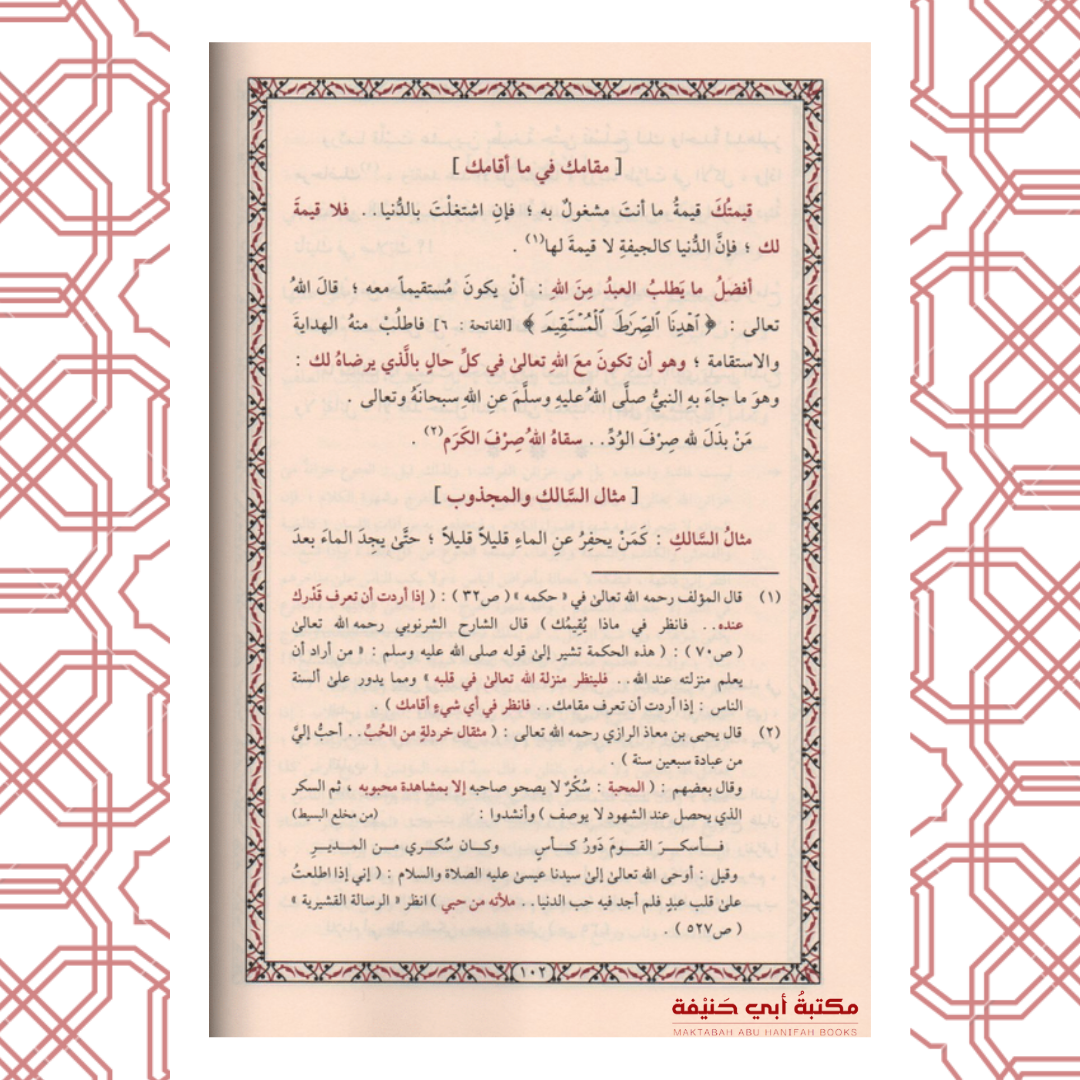 [ مقامك في ما أقامك ]
قيمتُكَ قيمةُ ما أنتَ مشغولٌ به ؛ فإنِ اشتغلْتَ بالدُّنيا.. فلا قيمةَ
لك ؛ فإنَّ الدُّنيا كالجيفةِ لا قيمةَ لها(١) .
أفضلُ ما يَطلبُ العبدُ مِنَ اللهِ : أنْ يكونَ مُستقيماً معه ؛ قالَ اللهُ
تعالى : ﴿ ٱهْدِنَا ٱلصِّرَٰطَ ٱلْمُسْتَقِيمَ ﴾ [الفاتحة : ٦] فاطلُبْ منهُ الهدايةَ
والاستقامة ؛ وهو أن تكونَ معَ اللهِ تعالىٰ في كلِّ حالٍ بالَّذي يرضاهُ لك :
وهوَ ما جاءَ بهِ النبيُّ صلَّى اللهُ عليهِ وسلَّمَ عنِ اللهِ سبحانَهُ وتعالى .
مَنْ بذَلَ لله صِرْفَ الوُدِّ.. سقاهُ اللهُ صِرْفَ الكَرَم(٢) .
[ مثال السَّالك والمجذوب ]
مثالُ السَّالكِ : كمَنْ يحفِرُ عنِ الماءِ قليلاً قليلاً ؛ حتَّىٰ يجدَ الماءَ بعدَ
(١) قال المؤلف رحمه الله تعالىٰ في « حكمه » ( ص٣٢ ) : ( إذا أردت أن تعرف قَدْرك
عنده.. فانظر في ماذا يُقِيمُك ) قال الشارح الشرنوبي رحمه الله تعالىٰ
( ص٧٠ ) : ( هذه الحكمة تشير إلىٰ قوله صلى الله عليه وسلم : « من أراد أن
يعلم منزلته عند الله.. فلينظر منزلة الله تعالىٰ في قلبه » ومما يدور علىٰ ألسنة
الناس : إذا أردت أن تعرف مقامك.. فانظر في أي شيءٍ أقامك )
(٢) قال يحيى بن معاذ الرازي رحمه الله تعالى : ( مثقال خردلةٍ من الحُبِّ.. أحبُّ إليَّ
من عبادة سبعين سنة ) .
وقال بعضهم : ( المحبة : سُكْرٌ لا يصحو صاحبه إلا بمشاهدة محبوبه ، ثم السكر
الذي يحصل عند الشهود لا يوصف ) وأنشدوا : (من مخلع البسيط)
فـأسكـرَ القـومَ دَورُ كـأسٍ وكـان سُكـري مـن المـديـرِ
وقيل : أوحى الله تعالىٰ إلىٰ سيدنا عيسىٰ عليه الصلاة والسلام : ( إني إذا اطلعتُ
علىٰ قلب عبدٍ فلم أجد فيه حب الدنيا.. ملأته من حبي ) انظر « الرسالة القشيرية »
( ص٥٢٧ ) .
١٠٢
مكتبةُ أبي حَنيْفة
MAKTABAH ABU HANIFAH BOOKS